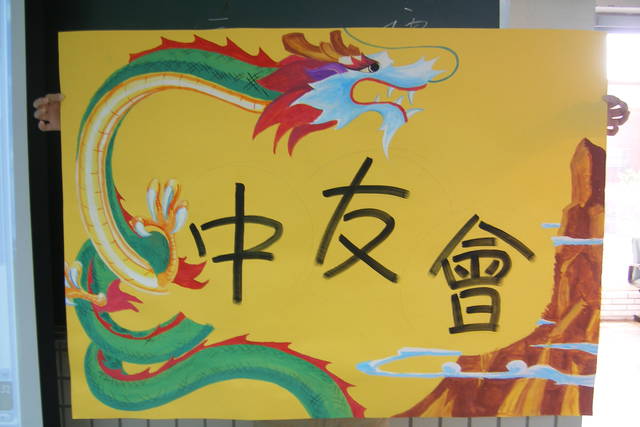 中友會